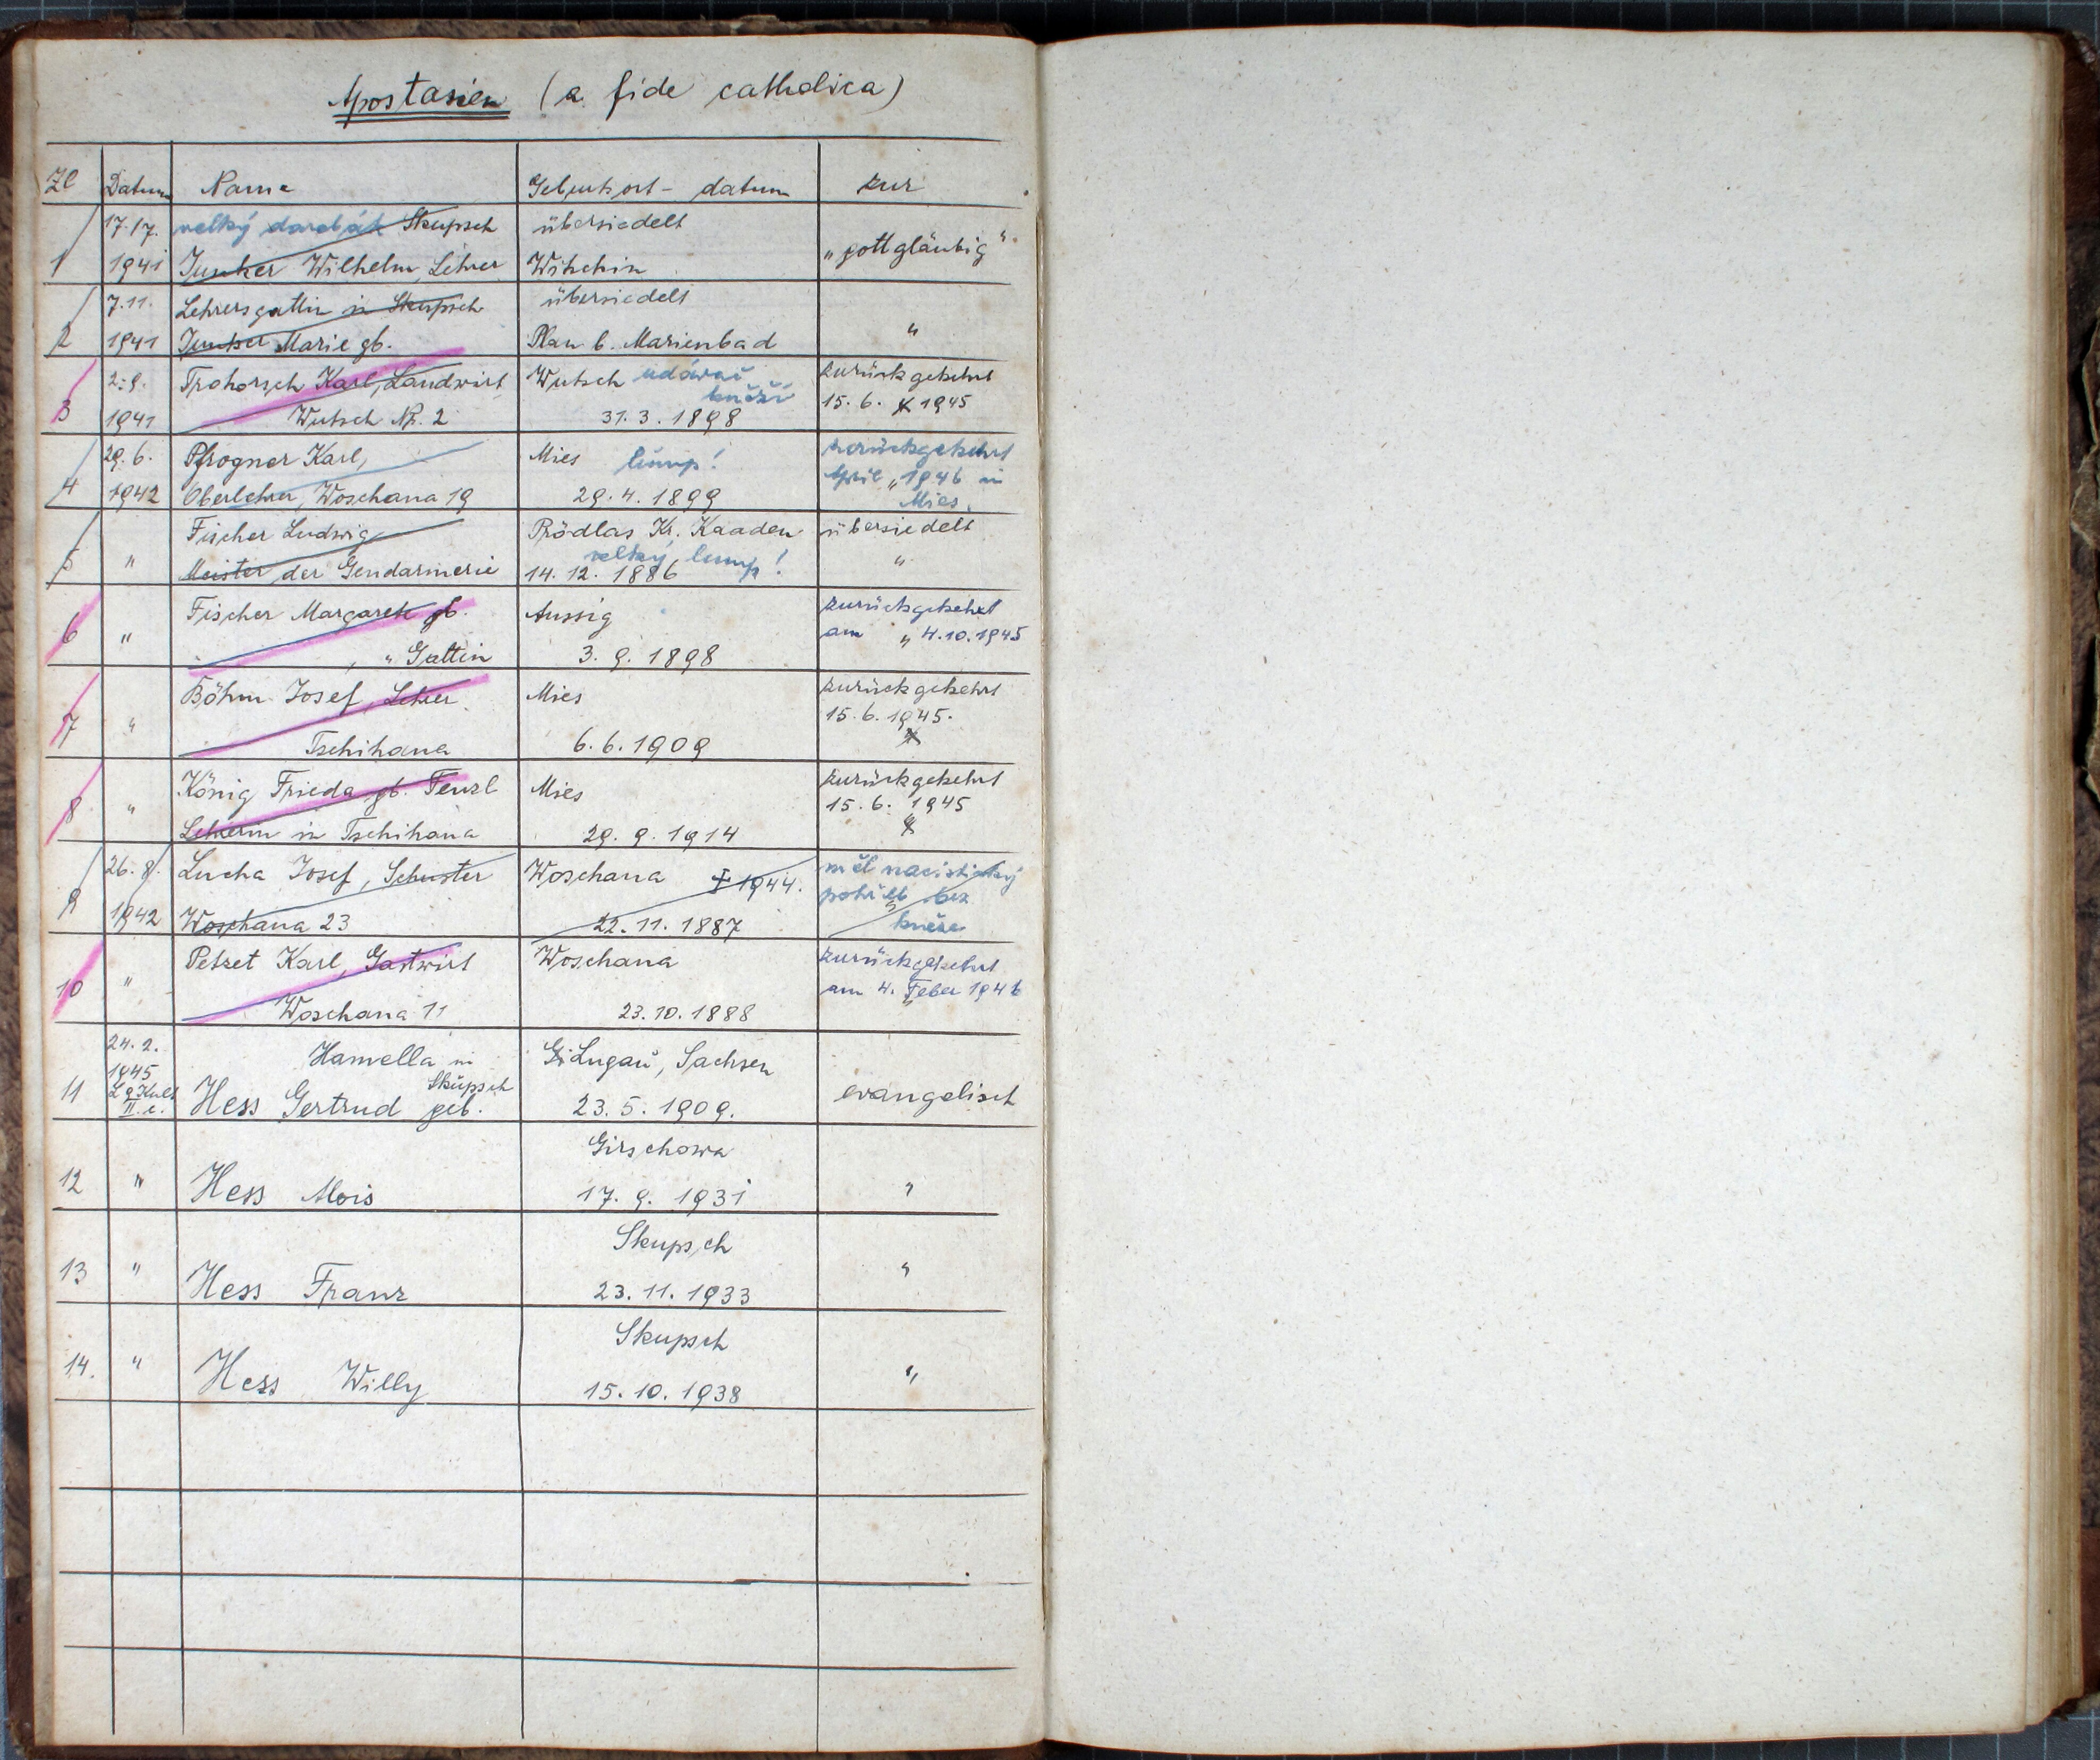 Apostasien (a fide catholica)
Zl Datum Name Geburtsort- datum zur
17.17. velký darebák Skupsch übersiedelt
1 1941 Junker Wilhelm, Lehrer Witschin „gottgläubig“
7.11. Lehrersgattin in Skupsch übersiedelt
2 1941 Junker Marie gb. Plan b. Marienbad "
2.9. Trohorsch Karl, Landwirt Wutsch udavač zurückgekehrt
kněží 15.6. 1945
3 1941 Wutsch Nr. 2 31.3.1898
29.6. Pfrogner Karl, Mies lump! zurückgekehrt
4 1942 Oberlehrer, Woschana 19 29.4.1899 April " 1946 in
Mies.
Fischer Ludwig Prödlas Kr. Kaaden übersiedelt
velký lump!
5 " Meister der Gendarmerie 14.12.1886 "
Fischer Margarete gb. Aussig zurückgekehrt
6 " am " 4.10.1945
" Gattin 3.9.1898
Böhm Josef, Lehrer Mies zurückgekehrt
7 " 15.6.1945.
Tschihana 6.6.1909
König Frieda gb. Fenzl Mies zurückgekehrt
8 " 15.6. 1945
Lehrerin in Tschihana 29.9.1914
26.8. Lucha Josef, Schuster Woschana † 1944. měl nacistický
pohřeb bez
9 1942 Woschana 23 22.11.1887 kněze
Petzet Karl, Gastwirt Woschana zurückgekehrt
10 " am 4. Feber 1946
Woschana 11 23.10.1888
24.2. Hamella in Lugau, Sachsen
1945 Skupsch
11 II. Hess Gertrud geb. 23.5.1909. evangelisch
Girschowa
12 " Hess Alois 17.9.1931 "
Skupsch
13 " Hess Franz 23.11.1933 "
Skupsch
14. " Hess Willy 15.10.1938 "